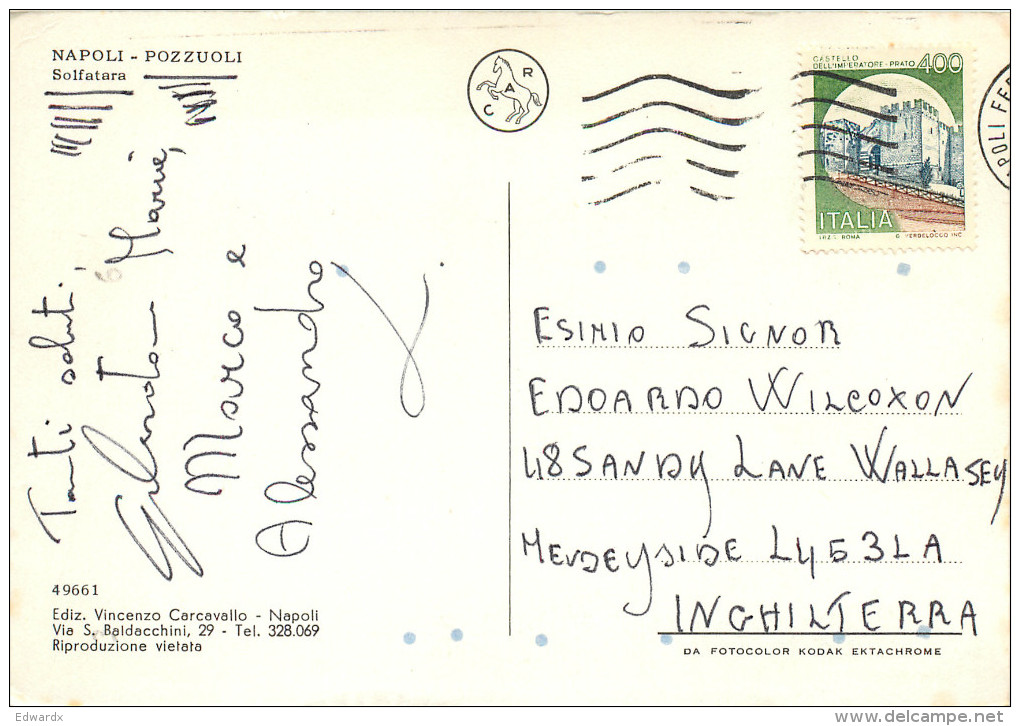 NAPOLI - POZZUOLI
Solfatara
R
A
C
CASTELLO
DELL'IMPERATORE - PRATO 400
ITALIA
I.P.Z.S. ROMA
POLI FER
Tanti saluti,
Marie,
Marco e
Alessandro
ESIMIO SIGNOR
EDOARDO WILCOXON
48 SANDY LANE WALLASEY
MERDEYSIDE L453LA
INGHILTERRA
49661
Ediz. Vincenzo Carcavallo - Napoli
Via S. Baldacchini, 29 - Tel. 328.069
Riproduzione vietata
DA FOTOCOLOR KODAK EKTACHROME
Edwardx
www.delcampe.net